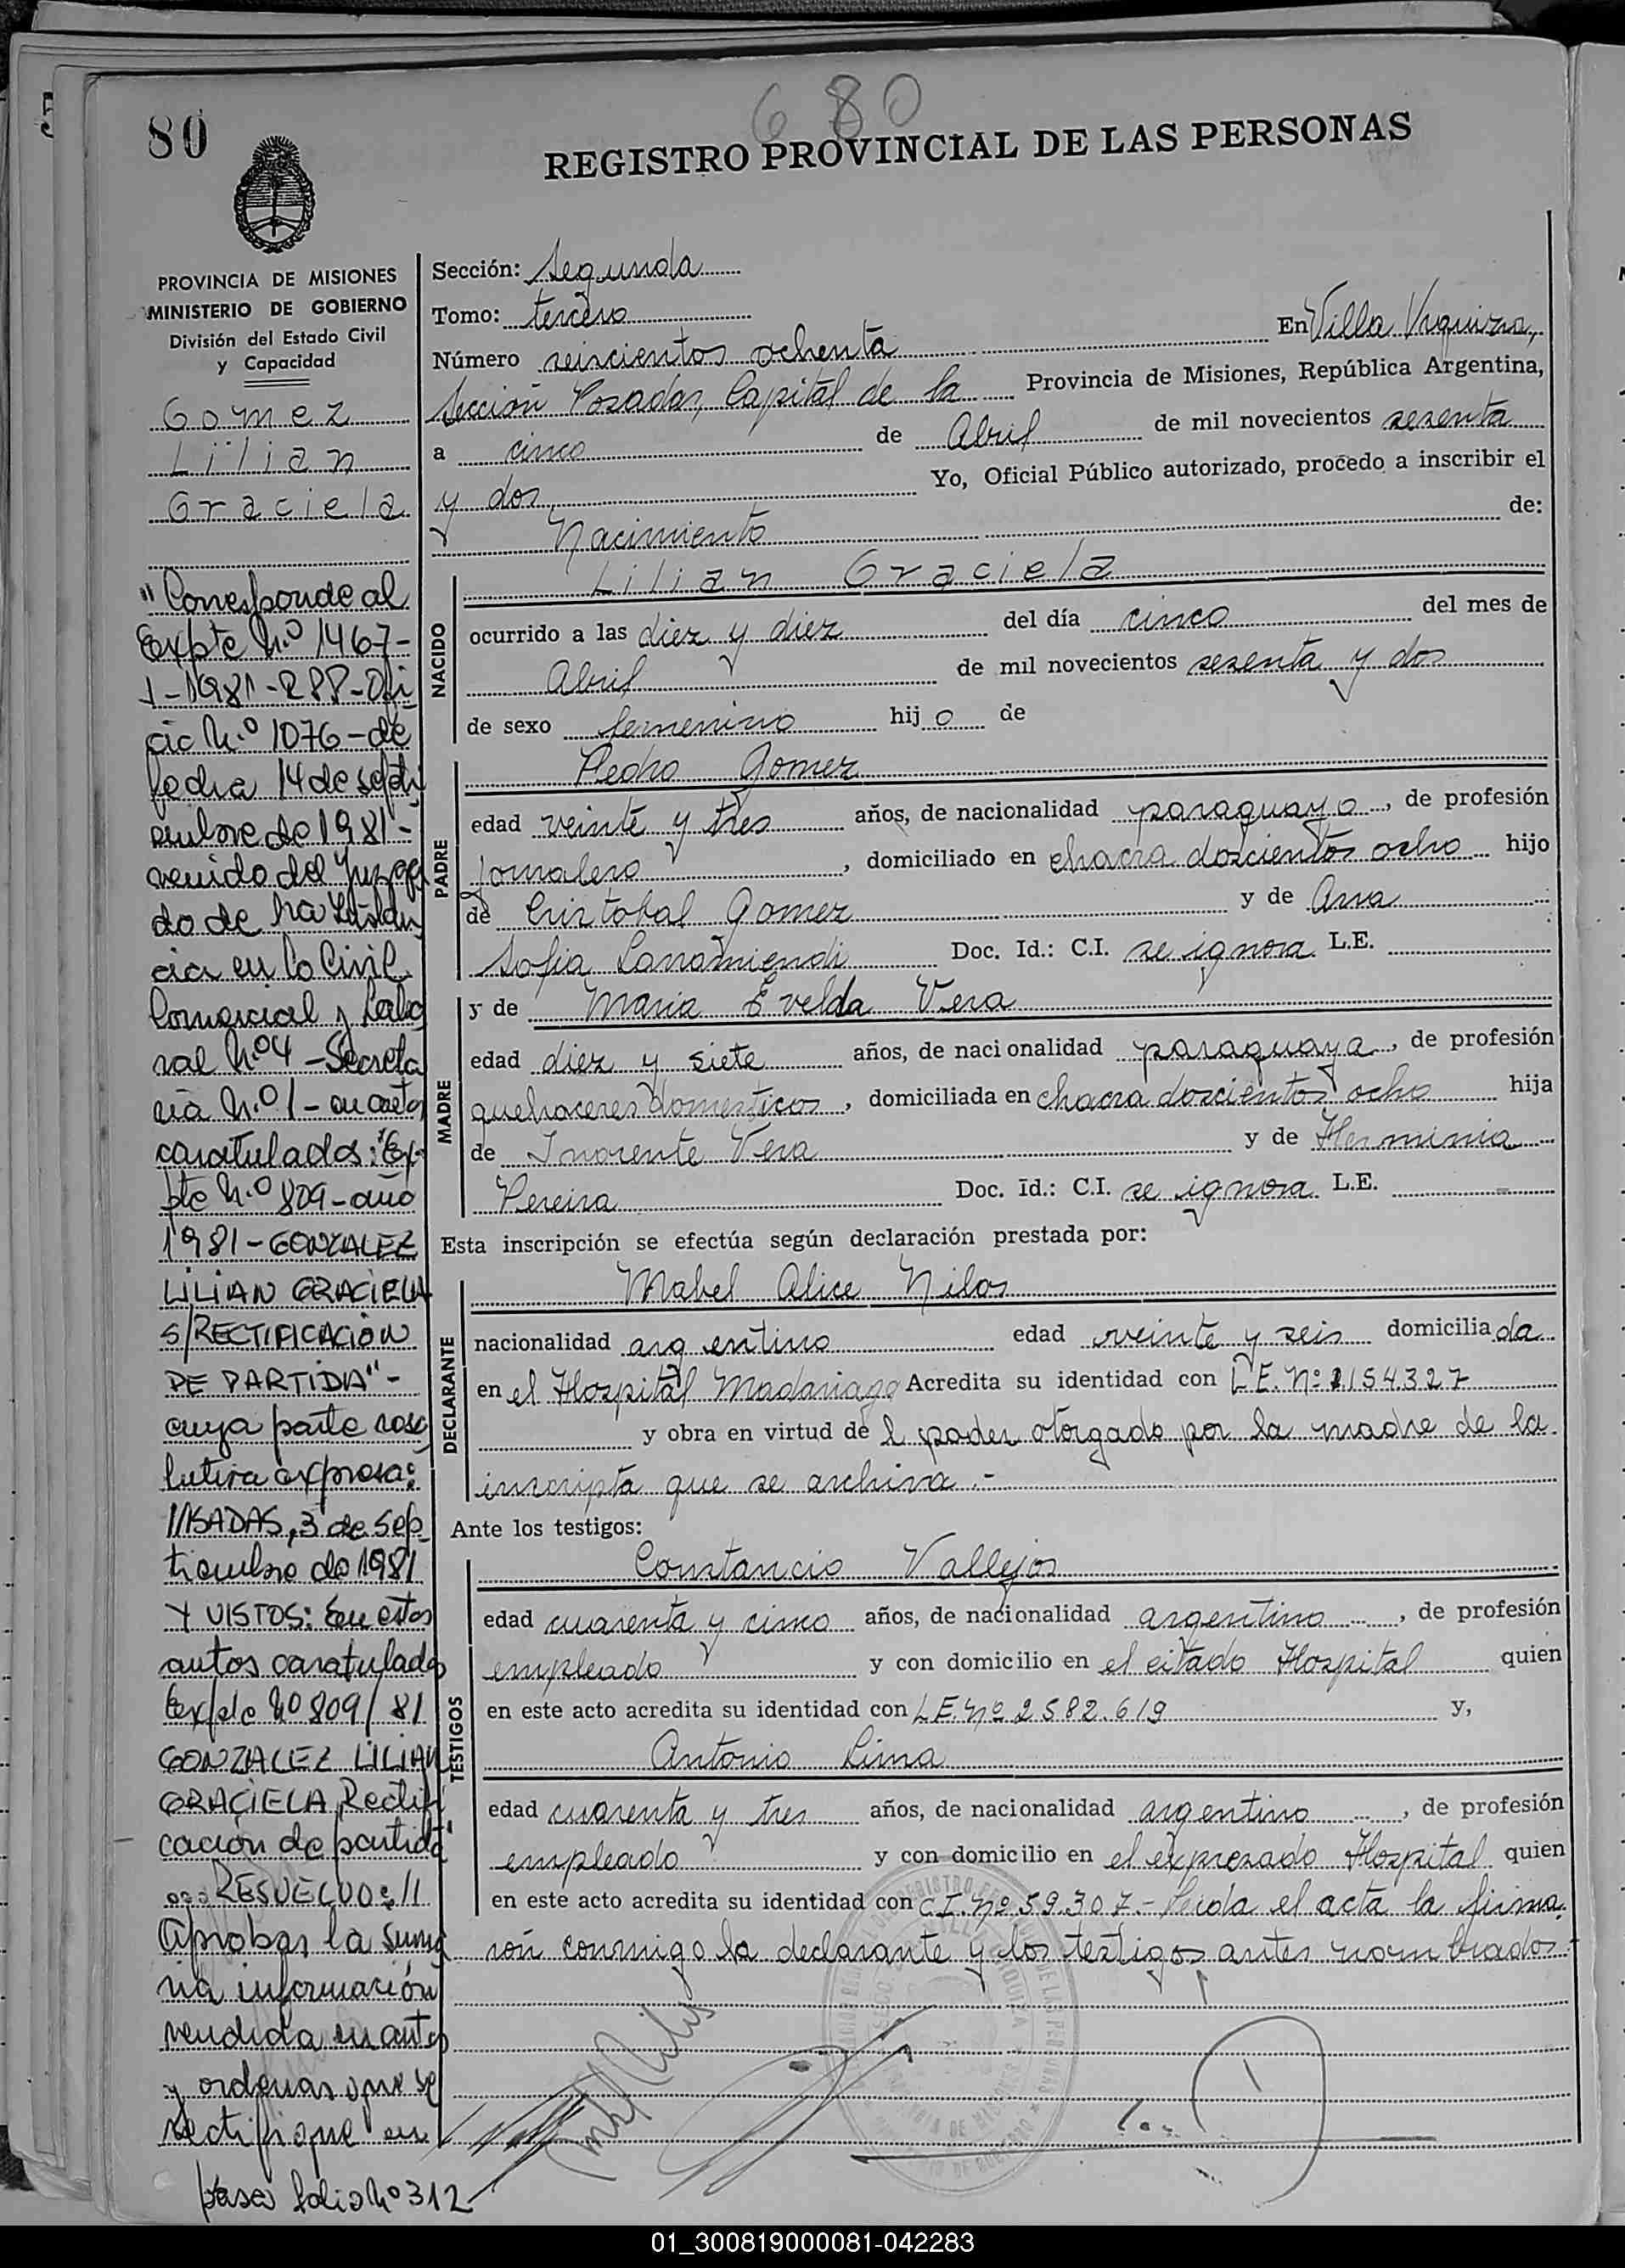 680
80
REGISTRO PROVINCIAL DE LAS PERSONAS
PROVINCIA DE MISIONES
MINISTERIO DE GOBIERNO
División del Estado Civil
y Capacidad
Gomez
Lilian
Graciela
"Corresponde al
Expte N.º 1467-
J-1981-RPP-Ofi
cio N.º 1076-de
fecha 14 de septi
embre de 1981-
venido del Juzga
do de 1ra Instan
cia en lo Civil
Comercial y Labo
ral N.º 4 - Secreta
ria N.º 1 - en autos
caratulados: "Ex-
pte N.º 809-año
1981-GONZALEZ
LILIAN GRACIELA
S/RECTIFICACION
DE PARTIDA"-
cuya parte reso
lutiva expresa:
///SADAS, 3 de Sep
tiembre de 1981
Y VISTOS: En estos
autos caratulados
Expte Nº 809/81
GONZALEZ LILIAN
GRACIELA Rectifi
cación de partida"
... RESUELVO: //
Aprobar la suma
ria información
rendida en autos
y ordenar que se
rectifique en
pasa folio Nº 312
Sección: Segunda
Tomo: tercero
Número seiscientos ochenta En Villa Urquiza,
Sección Posadas, Capital de la Provincia de Misiones, República Argentina,
a cinco de Abril de mil novecientos sesenta
y dos Yo, Oficial Público autorizado, procedo a inscribir el
Nacimiento de:
NACIDO
Lilian Graciela
ocurrido a las diez y diez del día cinco del mes de
Abril de mil novecientos sesenta y dos
de sexo femenino hijo de
PADRE
Pedro Gomez
edad veinte y tres años, de nacionalidad paraguayo, de profesión
jornalero, domiciliado en chacra doscientos ocho hijo
de Cristobal Gomez y de Ana
Sofia Doc. Id.: C.I. se ignora L.E.
MADRE
y de Maria Evelda Vera
edad diez y siete años, de nacionalidad paraguaya, de profesión
quehaceres domesticos, domiciliada en chacra doscientos ocho hija
de Inocente Vera y de Herminia
Pereira Doc. Id.: C.I. se ignora L.E.
Esta inscripción se efectúa según declaración prestada por:
DECLARANTE
Mabel Alice Nilos
nacionalidad argentino edad veinte y seis domiciliada
en el Hospital Madariaga Acredita su identidad con L.E. Nº 1154.327
y obra en virtud del poder otorgado por la madre de la
inscripta que se archiva.-
Ante los testigos:
TESTIGOS
Constancio Vallejos
edad cuarenta y cinco años, de nacionalidad argentino, de profesión
empleado y con domicilio en el citado Hospital quien
en este acto acredita su identidad con L.E. Nº 2582.619 y,
Antonio Lima
edad cuarenta y tres años, de nacionalidad argentino, de profesión
empleado y con domicilio en el expresado Hospital quien
en este acto acredita su identidad con C.I. Nº 59.307.- Leida el acta la firma
ron conmigo la declarante y los testigos antes nombrados.-
01_300819000081-042283